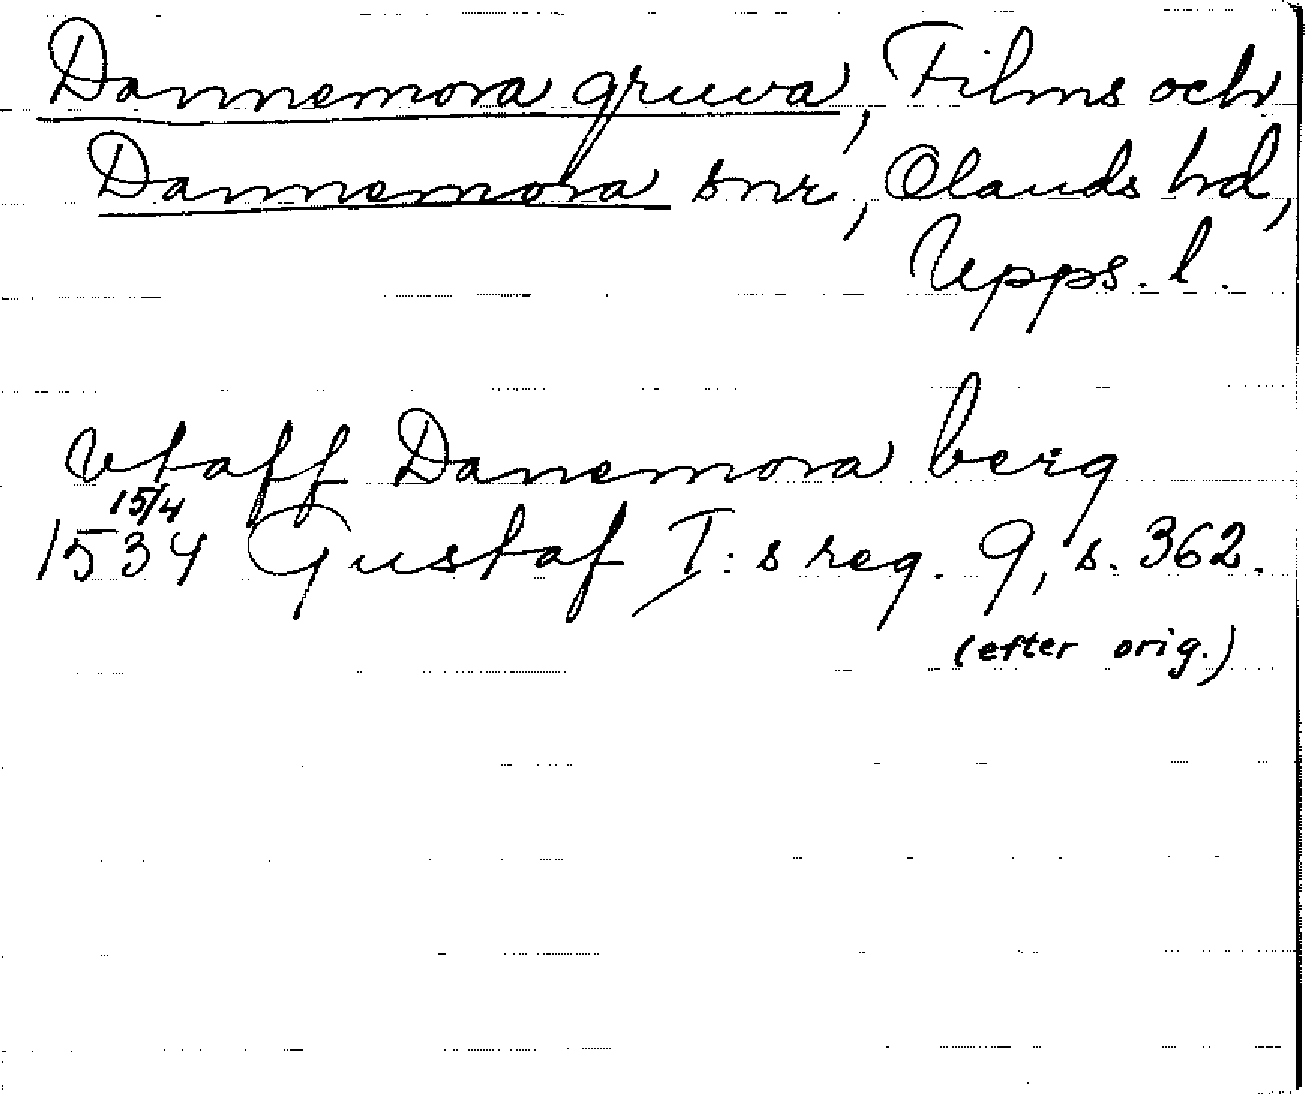 Dannemora gruva, Films och
Dannemora snr, Olands hd,
Upps. l.
vtaff Danemora berg
15/4
1534 Gustaf I:s reg. 9, s. 362.
(efter orig.)